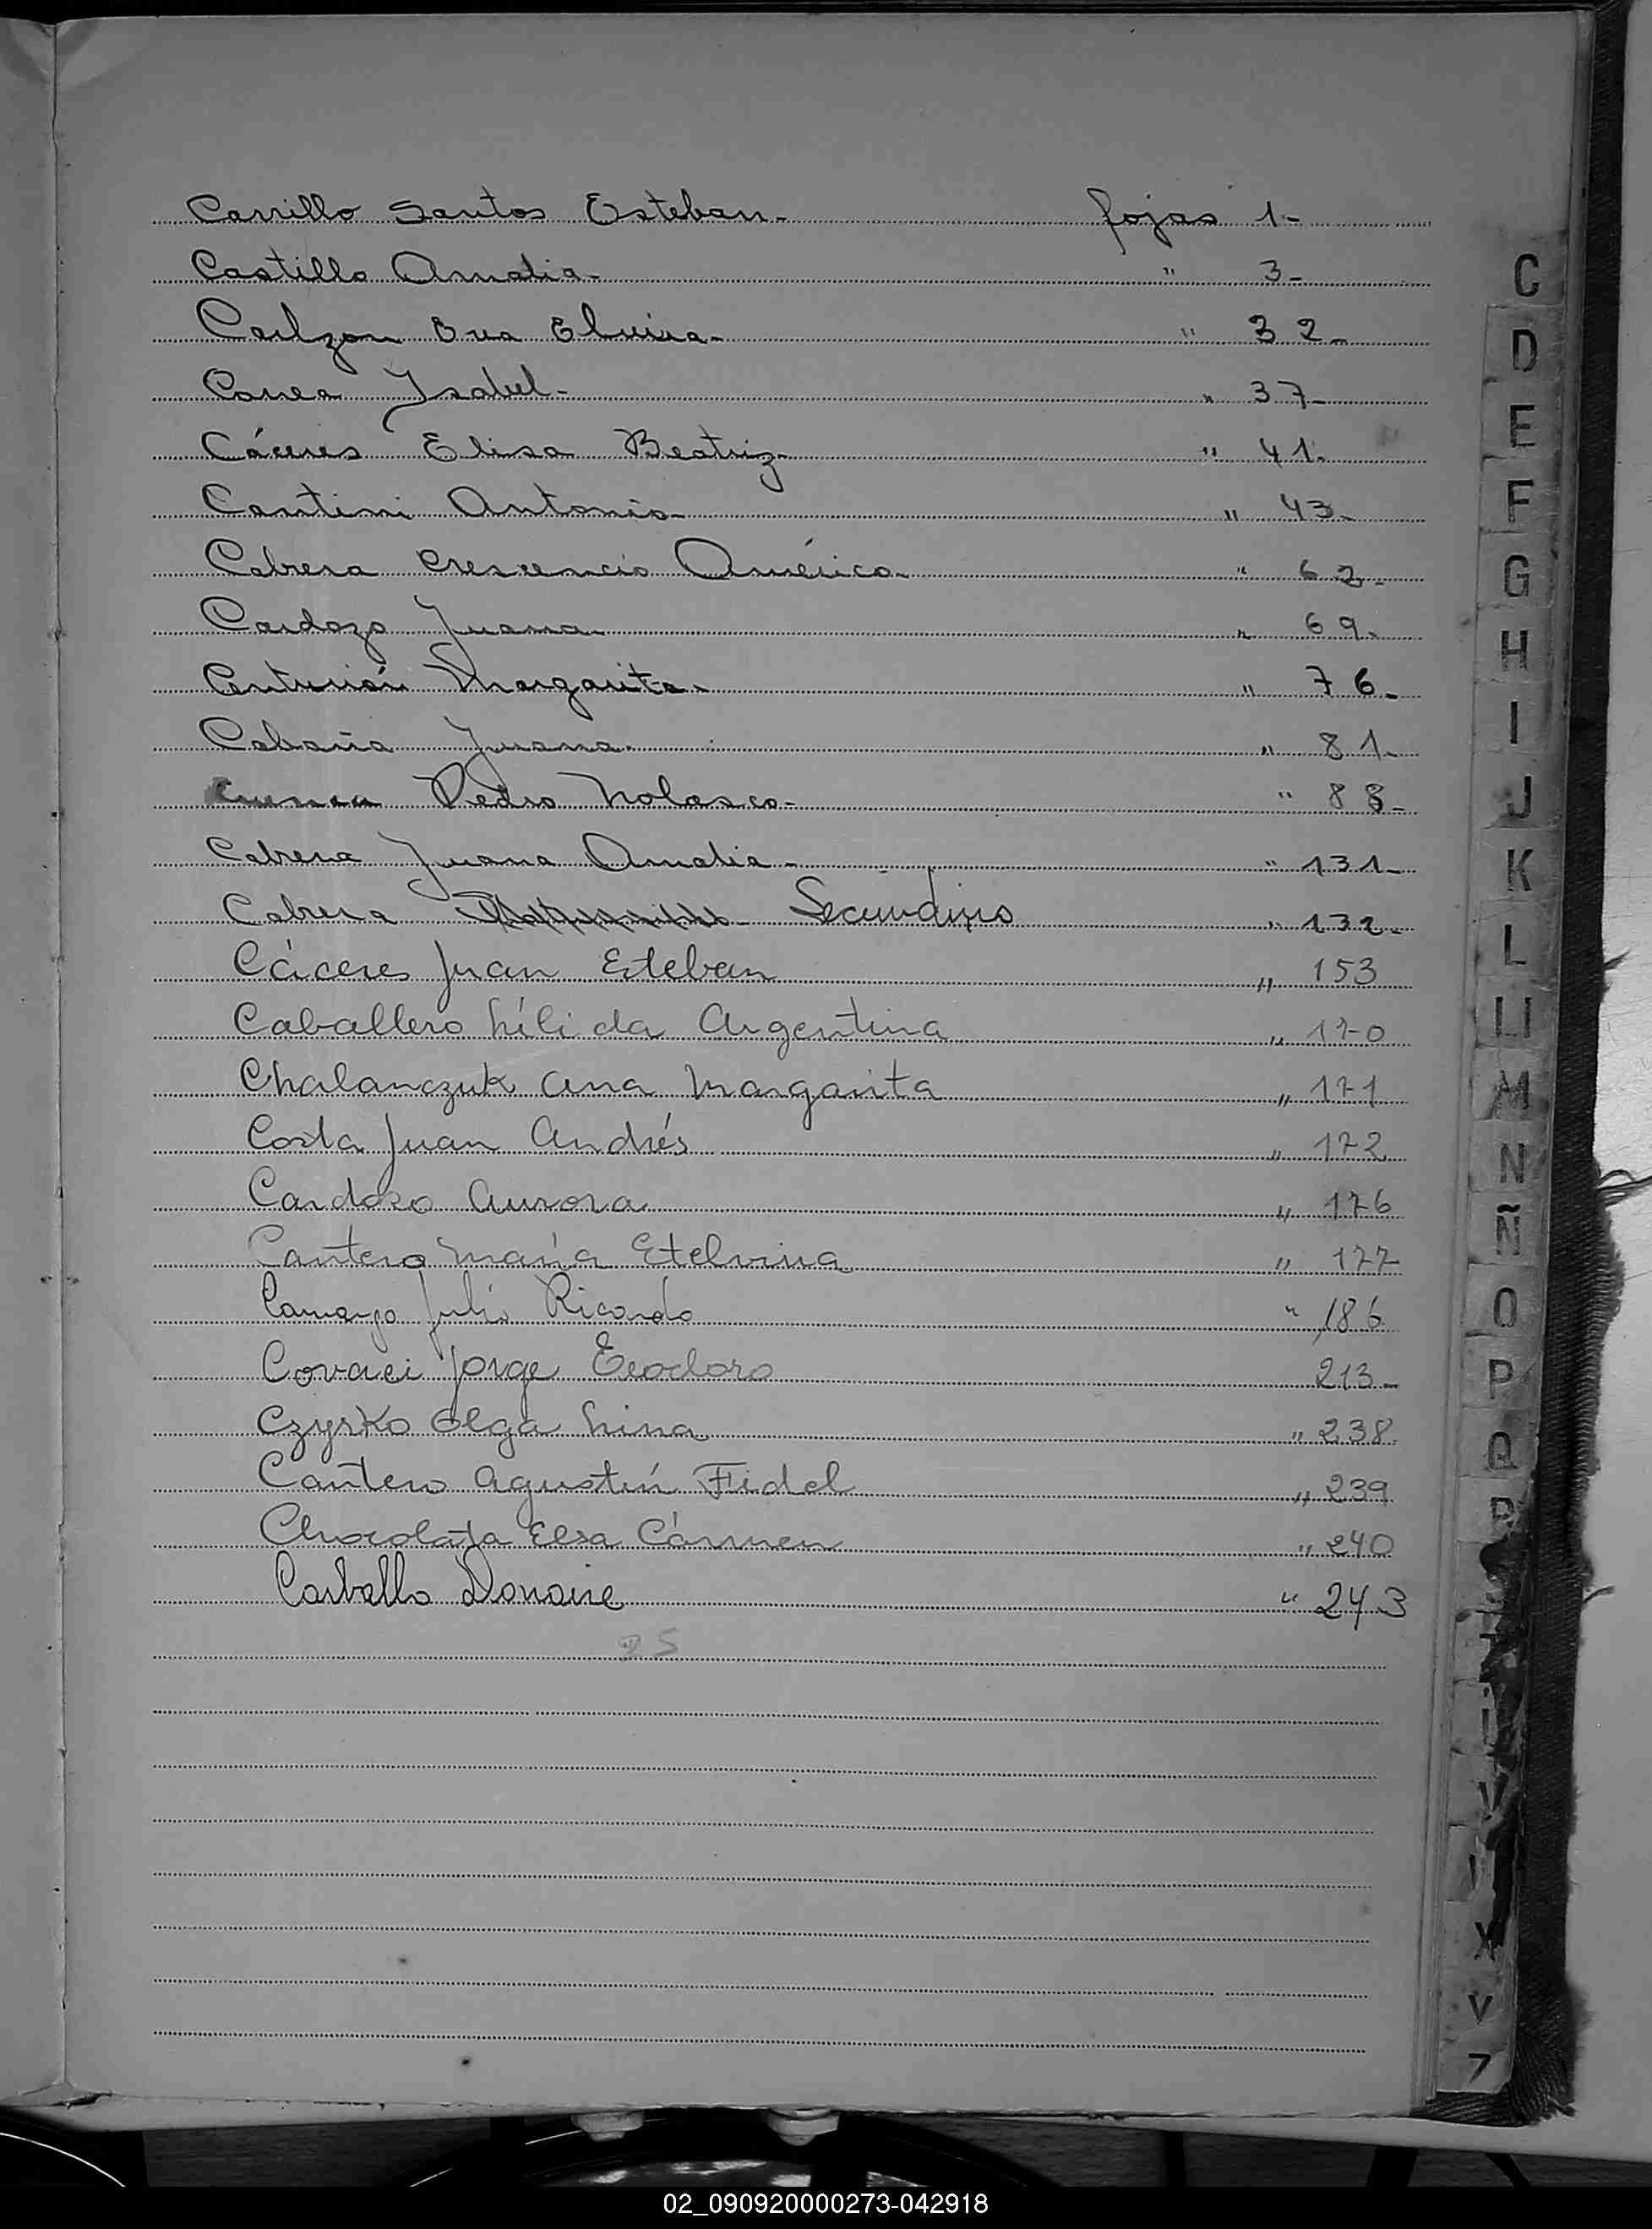 Carrillo Santos Esteban- fojas 1-
Castillo Amalia- " 3-
Carlzon Eva Elvira- " 32-
Correa Ysabel- " 37-
Cáceres Elisa Beatriz- " 41-
Cantini Antonio- " 43-
Cabrera Crescencio Américo- " 62-
Cardozo Juana- " 69-
Centurión Margarita- " 76-
Cabaña Juana- " 81-
Cuenca Pedro Nolasco- " 88-
Cabrera Juana Amalia- " 131-
Cabrera Secundino " 132-
Cáceres Juan Esteban " 153
Caballero Nélida Argentina " 170
Chalanczuk Ana Margarita " 171
Costa Juan Andrés " 172
Cardozo Aurora " 176
Cantero María Etelvina " 177
Camargo Julio Ricardo " 186
Covaci Jorge Teodoro 213-
Czysko Olga Nina " 238
Cantero Agustín Fidel " 239
Chocolata Elsa Cármen " 240
Carballo Donaire " 243
25
C
D
E
F
G
H
I
J
K
L
Ll
M
N
Ñ
O
P
Q
R
V
X
02_090920000273-042918